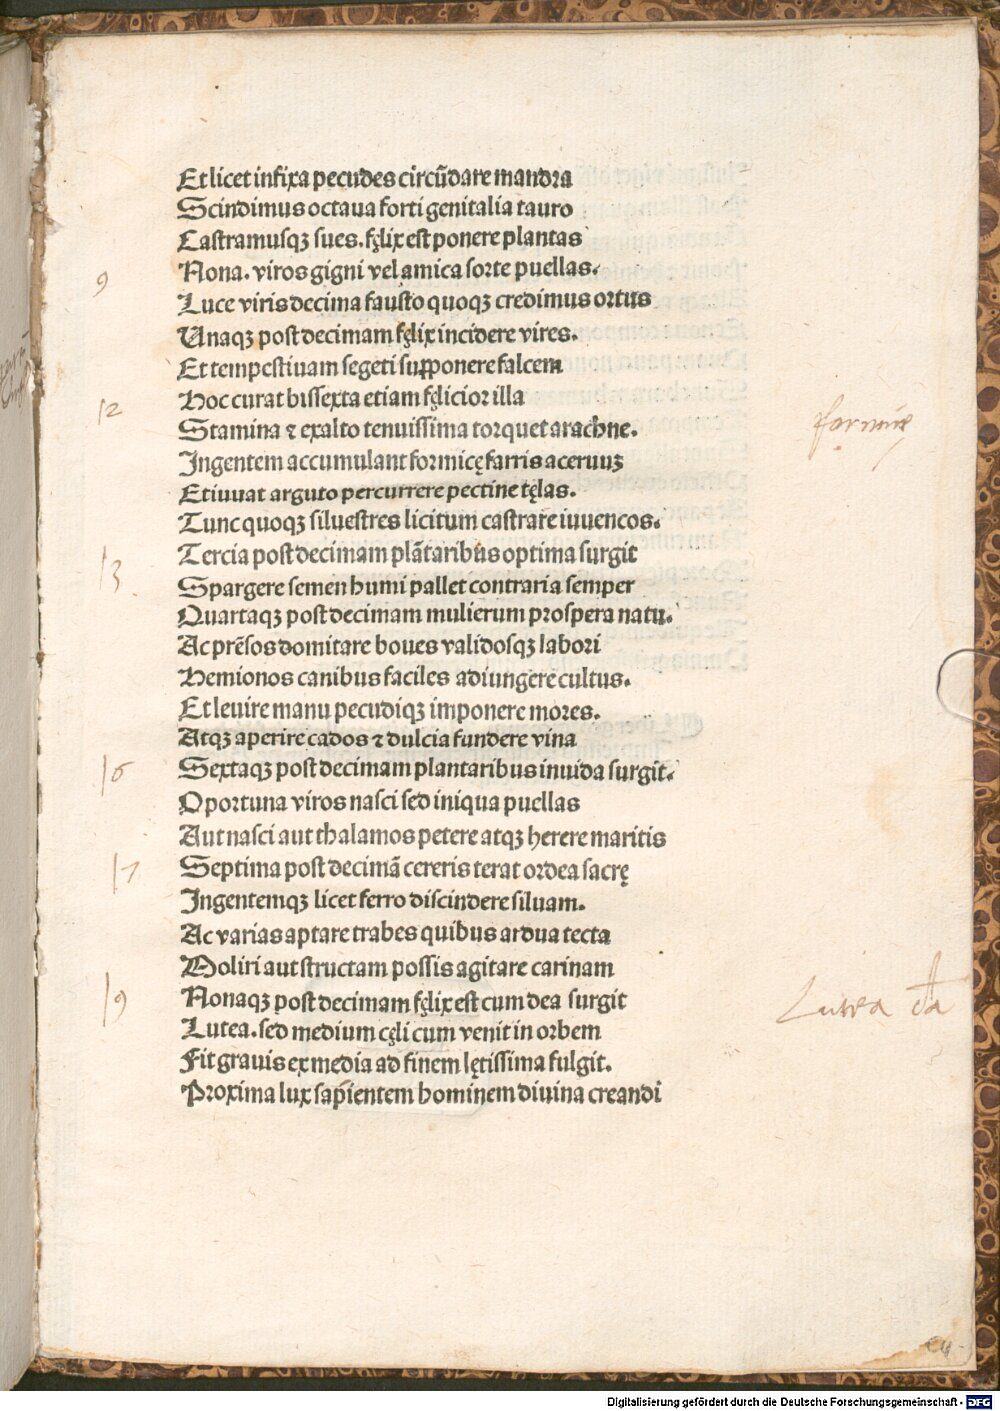 Et licet infixa pecudes circūdare mandra
Scindimus octaua forti genitalia tauro
Castramusqꝫ sues. fęlix est ponere plantas
9 Nona. viros gigni vel amica sorte puellas.
Luce viris decima fausto quoqꝫ credimus ortus
Unaqꝫ post decimam fęlix incidere vires.
Et tempestiuam segeti supponere falcem
12 Hoc curat bissexta etiam fęlicior illa
Stamina ⁊ exalto tenuissima torquet arachne.
Ingentem accumulant formicę farris aceruuꝫ formicę
Et iuuat arguto percurrere pectine tęlas.
Tunc quoqꝫ siluestres licitum castrare iuuencos.
13 Tercia post decimam plātaribus optima surgit
Spargere semen humi pallet contraria semper
Quartaqꝫ post decimam mulierum prospera natu.
Ac prēsos domitare boues validosqꝫ labori
Hemionos canibus faciles adiungere cultus.
Et leuire manu pecudiqꝫ imponere mores.
Atqꝫ aperire cados ⁊ dulcia fundere vina
16 Sextaqꝫ post decimam plantaribus inuida surgit.
Oportuna viros nasci sed iniqua puellas
Aut nasci aut thalamos petere atqꝫ herere maritis
17 Septima post decimā cereris terat ordea sacrę
Ingentemqꝫ licet ferro discindere siluam.
Ac varias aptare trabes quibus ardua tecta
Moliri aut structam possis agitare carinam
19 Nonaqꝫ post decimam fęlix est cum dea surgit Lutea dea
Lutea. sed medium cęli cum venit in orbem
Fit grauis ex media ad finem lętissima fulgit.
Proxima lux sapientem hominem diuina creandi
Digitalisierung gefördert durch die Deutsche Forschungsgemeinschaft - DFG